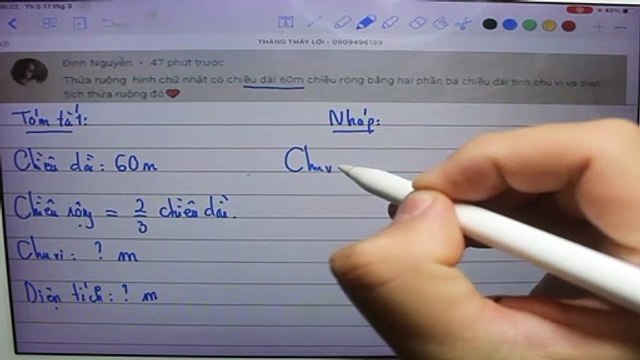 Th 5 17 thg 3
40%
THẮNG THẦY LỢI - 0909496199
Đinh Nguyễn • 47 phút trước
Thửa ruộng hình chữ nhật có chiều dài 60m chiều rộng bằng hai phần ba chiều dài tính chu vi và diện
tích thửa ruộng đó❤
Tóm tắt:
Nháp:
Chiều dài: 60m
Chuv
Chiều rộng = 2/3 chiều dài.
Chu vi: ? m
Diện tích: ? m